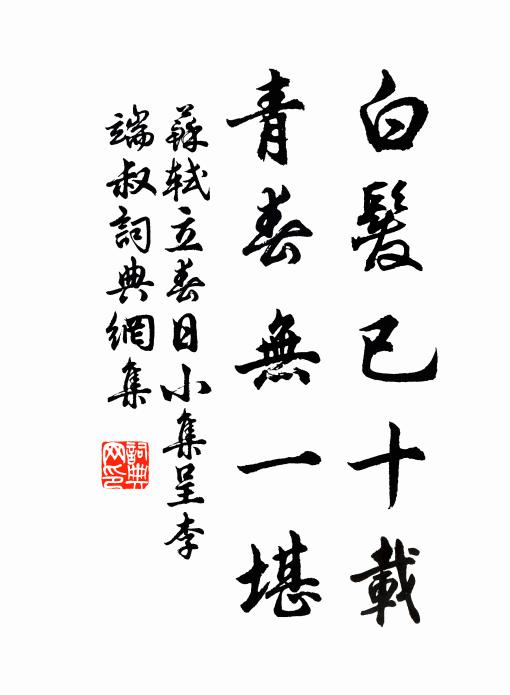 白髮已十載
青春無一堪
蘇軾立春日小集呈李
端叔詞典網集
詞典
网印